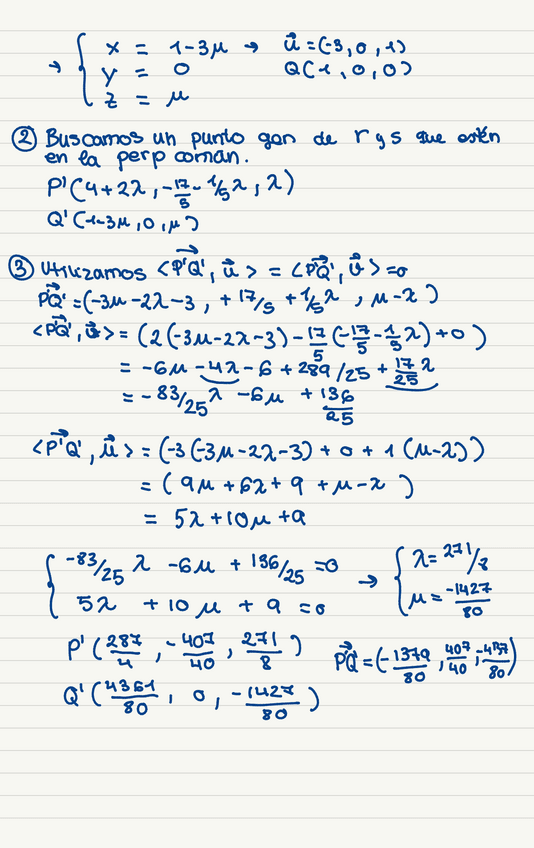 → { x = 1-3μ → u⃗ = (-3, 0, 1)
y = 0 Q(1, 0, 0)
z = μ
② Buscamos un punto gen de r y s que estén
en la perp común.
P'(4+2λ, -17/5 - 1/5λ, λ)
Q'(1-3μ, 0, μ)
③ Utilizamos <P'Q', u⃗> = <P'Q', v⃗> = 0
P'Q' = (-3μ-2λ-3, +17/5 + 1/5λ, μ-λ)
<P'Q', v⃗> = (2(-3μ-2λ-3) - 17/5(-17/5 - 1/5λ) + 0)
= -6μ - 4λ - 6 + 289/25 + 17/25 λ
= -83/25 λ - 6μ + 136/25
<P'Q', u⃗> = (-3(-3μ-2λ-3) + 0 + 1(μ-λ))
= (9μ + 6λ + 9 + μ - λ)
= 5λ + 10μ + 9
{ -83/25 λ - 6μ + 136/25 = 0 → { λ = 271/8
5λ + 10μ + 9 = 0 μ = -1427/80
P'(287/4, -407/40, 271/8) P'Q' = (-1379/80, 407/40, -4137/80)
Q'(4361/80, 0, -1427/80)